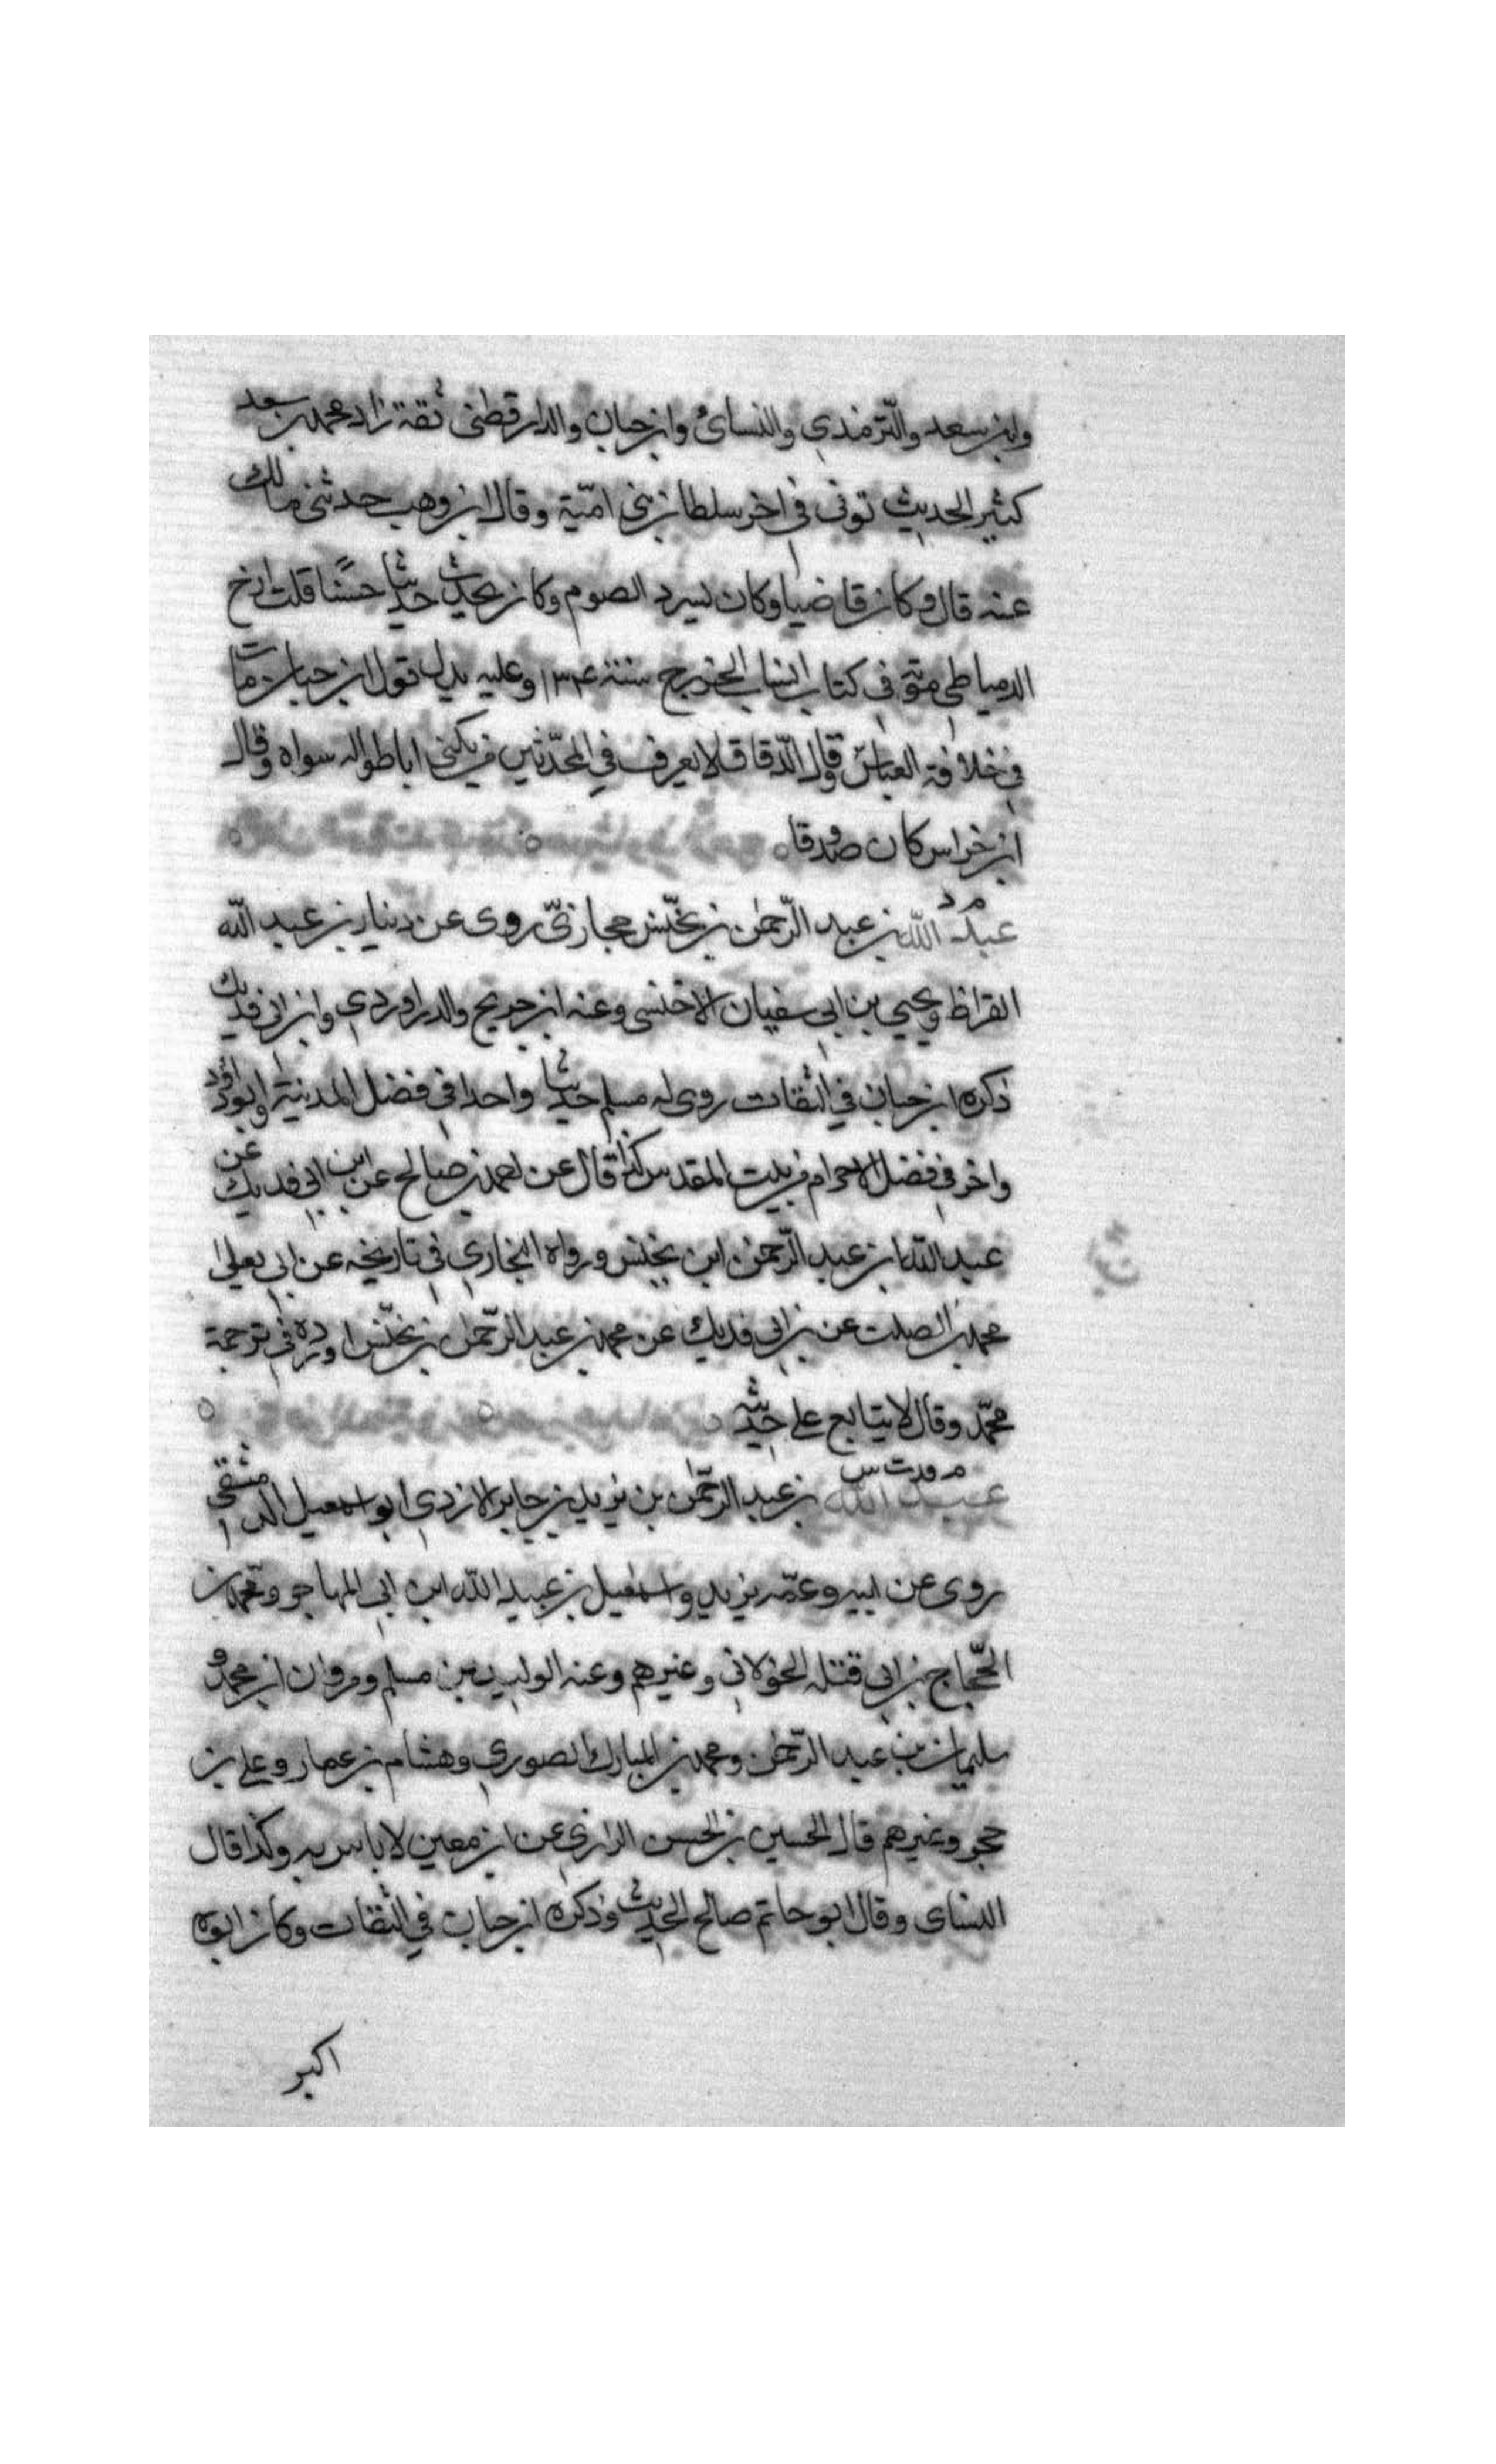 وابن سعد والترمذي والنسائ وابن حبان والدارقطنى ثقة زاد محمد بن سعد
كثير الحديث توفى في اخر سلطان بنى امية وقال ابن وهب حدثنى مالك
عنه قال وكان قاضيا وكان يسرد الصوم وكان يحدث حديثا حسنا قلت ارخ
الدمياطي موته في كتاب انساب الخزرج سنة ١٣٤ وعليه يدل قول ابن حبان مات
في خلافة العباس وقال الدقاق لا يعرف في المحدثين من يكنى اباطواله سواه وقال
ابن خراس كان صدوقا
م د
عبد الله بن عبد الرحمن بن يحنّس حجازيّ روى عن دينار بن عبد الله
القراظ ويحيي بن ابي سفيان الاخنسى وعنه ابن جريح والدراوردي وابن ابي فديك
ذكره ابن حبان في الثقات روى له مسلم حديثا واحدا في فضل المدينة وابو داود
واخر في فضل الاحرام من بيت المقدس كذا قال عن احمد بن صالح عن ابن ابي فديك عن
عبد الله ابن عبد الرحمن ابن يحنس ورواه البخاري في تاريخه عن ابي يعلى
محمد بن الصلت عن بن ابي فديك عن محمد بن عبد الرحمن بن يحنّس اورده في ترجمة
محمّد وقال لا يتابع على حديثه
عبد الله بن عبد الرحمن بن يزيد بن جابر الازدي ابو اسمعيل الدمشقي
روى عن ابيه وعمّه يزيد واسمعيل بن عبيد الله ابن ابي المهاجر ومحمد بن
الحّجاج بن ابي قتلة الخولاني وغيرهم وعنه الوليد بن مسلم ومروان ابن محمد و
سليمان بن عبد الرحمن ومحمد بن المبارك الصوري وهشام بن عمار وعلي بن
حجر وغيرهم قال الحسين بن الحسن الرازي عن ابن معين لا باس به وكذا قال
النساى وقال ابو حاتم صالح الحديث وذكره ابن حبان في الثقات وكان ابوه
اكبر